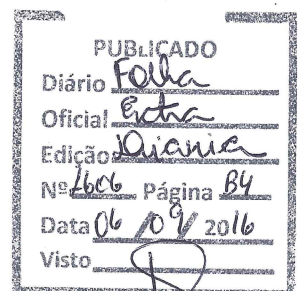 PUBLICADO
Diário Folha
Oficial Extra
Edição Diária
Nº 1606 Página B4
Data 06 / 09 / 2016
Visto